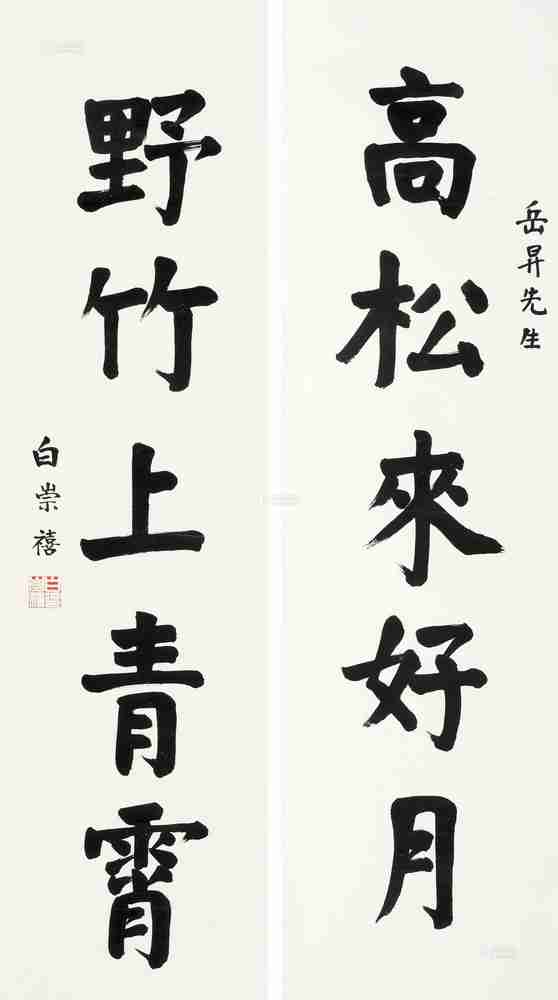 岳昇先生
高松來好月
野竹上青霄
白崇禧